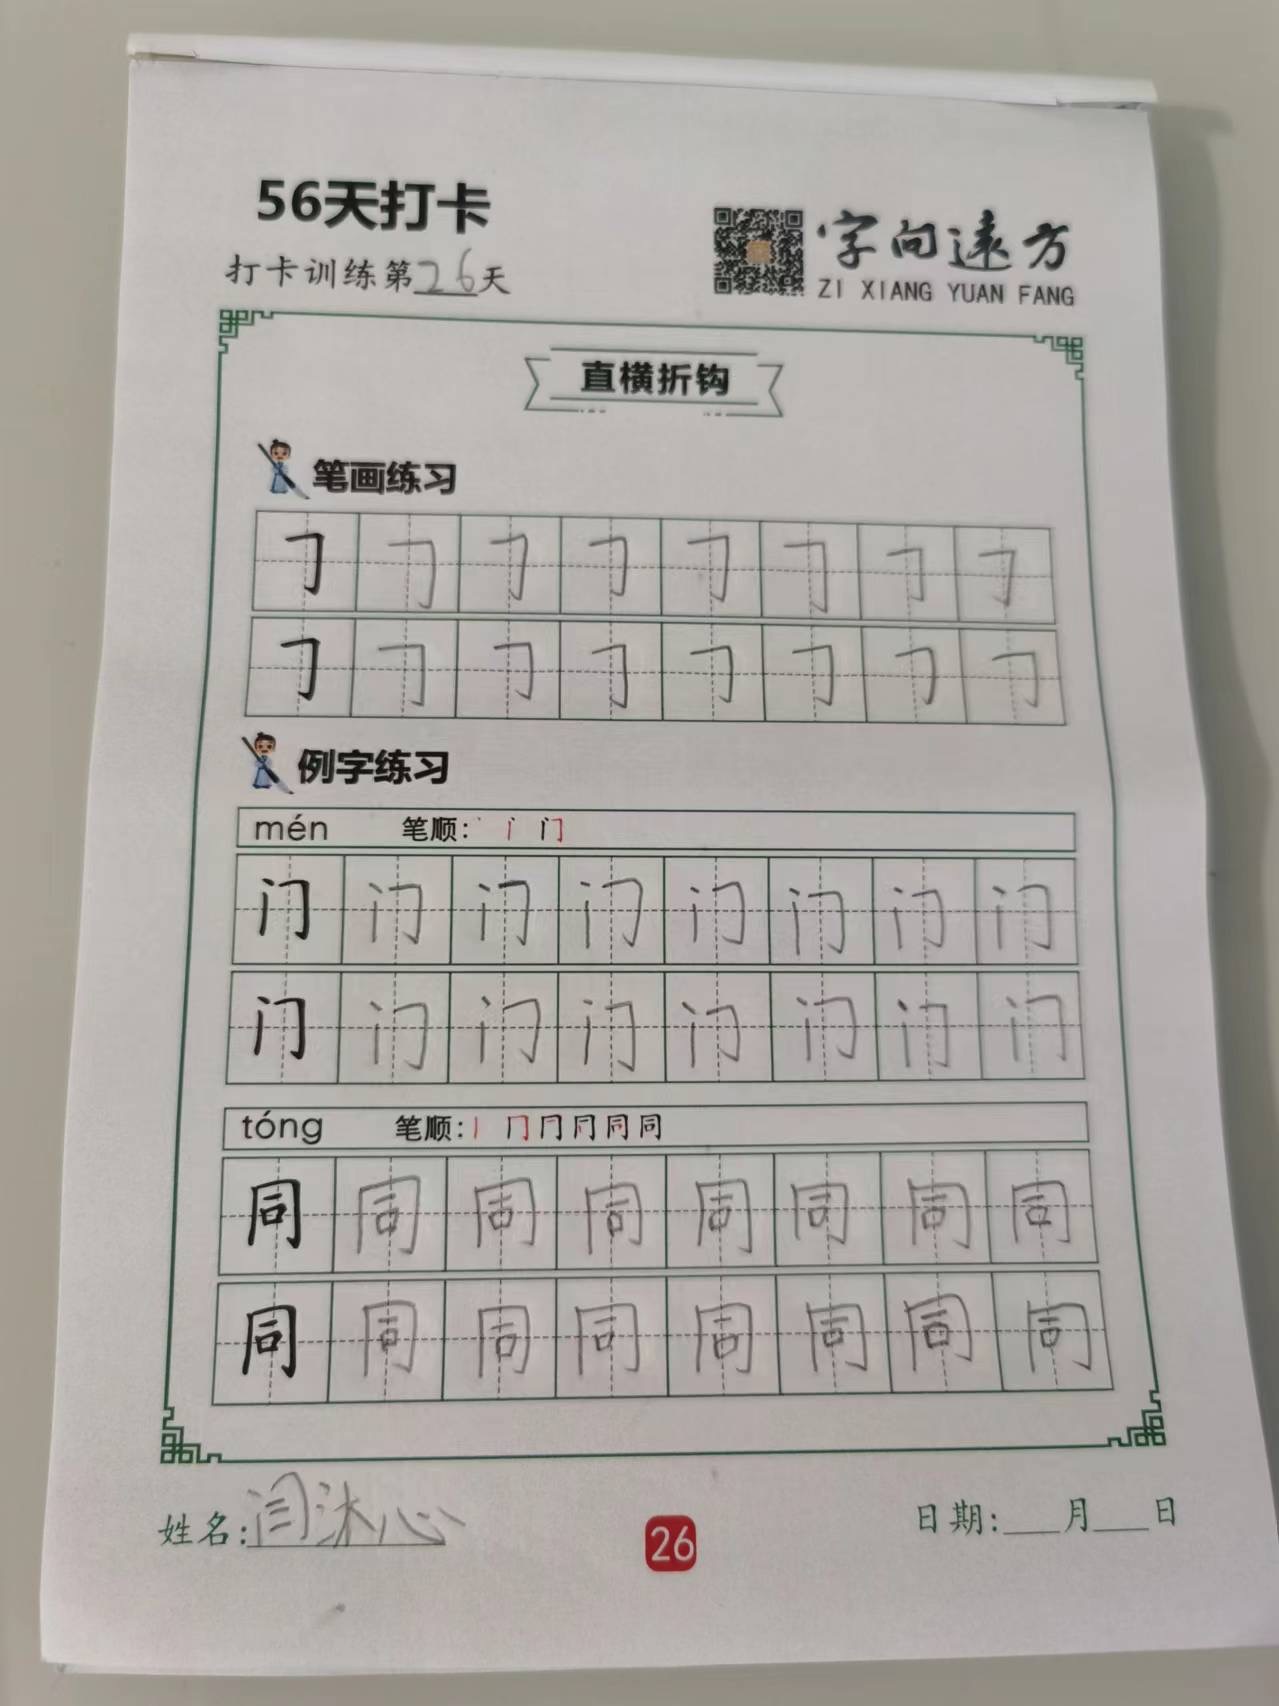 56天打卡
打卡训练第26天
字向远方
ZI XIANG YUAN FANG
直横折钩
笔画练习
𠃌 𠃌 𠃌 𠃌 𠃌 𠃌 𠃌 𠃌
𠃌 𠃌 𠃌 𠃌 𠃌 𠃌 𠃌 𠃌
例字练习
mén 笔顺: 丶 门
门 门 门 门 门 门 门 门
门 门 门 门 门 门 门 门
tóng 笔顺: 丨 冂 同
同 同 同 同 同 同 同 同
同 同 同 同 同 同 同 同
姓名: 闫沐心
26
日期: ___月___日